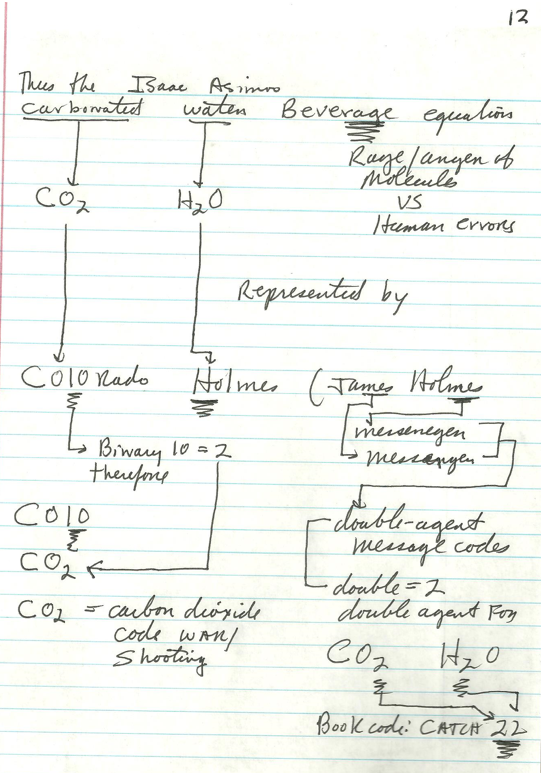 12
Thus the Isaac Asimov
carbonated water Beverage equation
Rage/anger of
Molecules
VS
Human errors
CO2 H2O
Represented by
CO10Rado Holmes (James Holmes
messenger
messanger
Binary 10 = 2
therefore
CO10
CO2
double-agent
message codes
double = 2
double agent For
CO2 = carbon dioxide
code WAR/
Shooting
CO2 H2O
Book code: CATCH 22